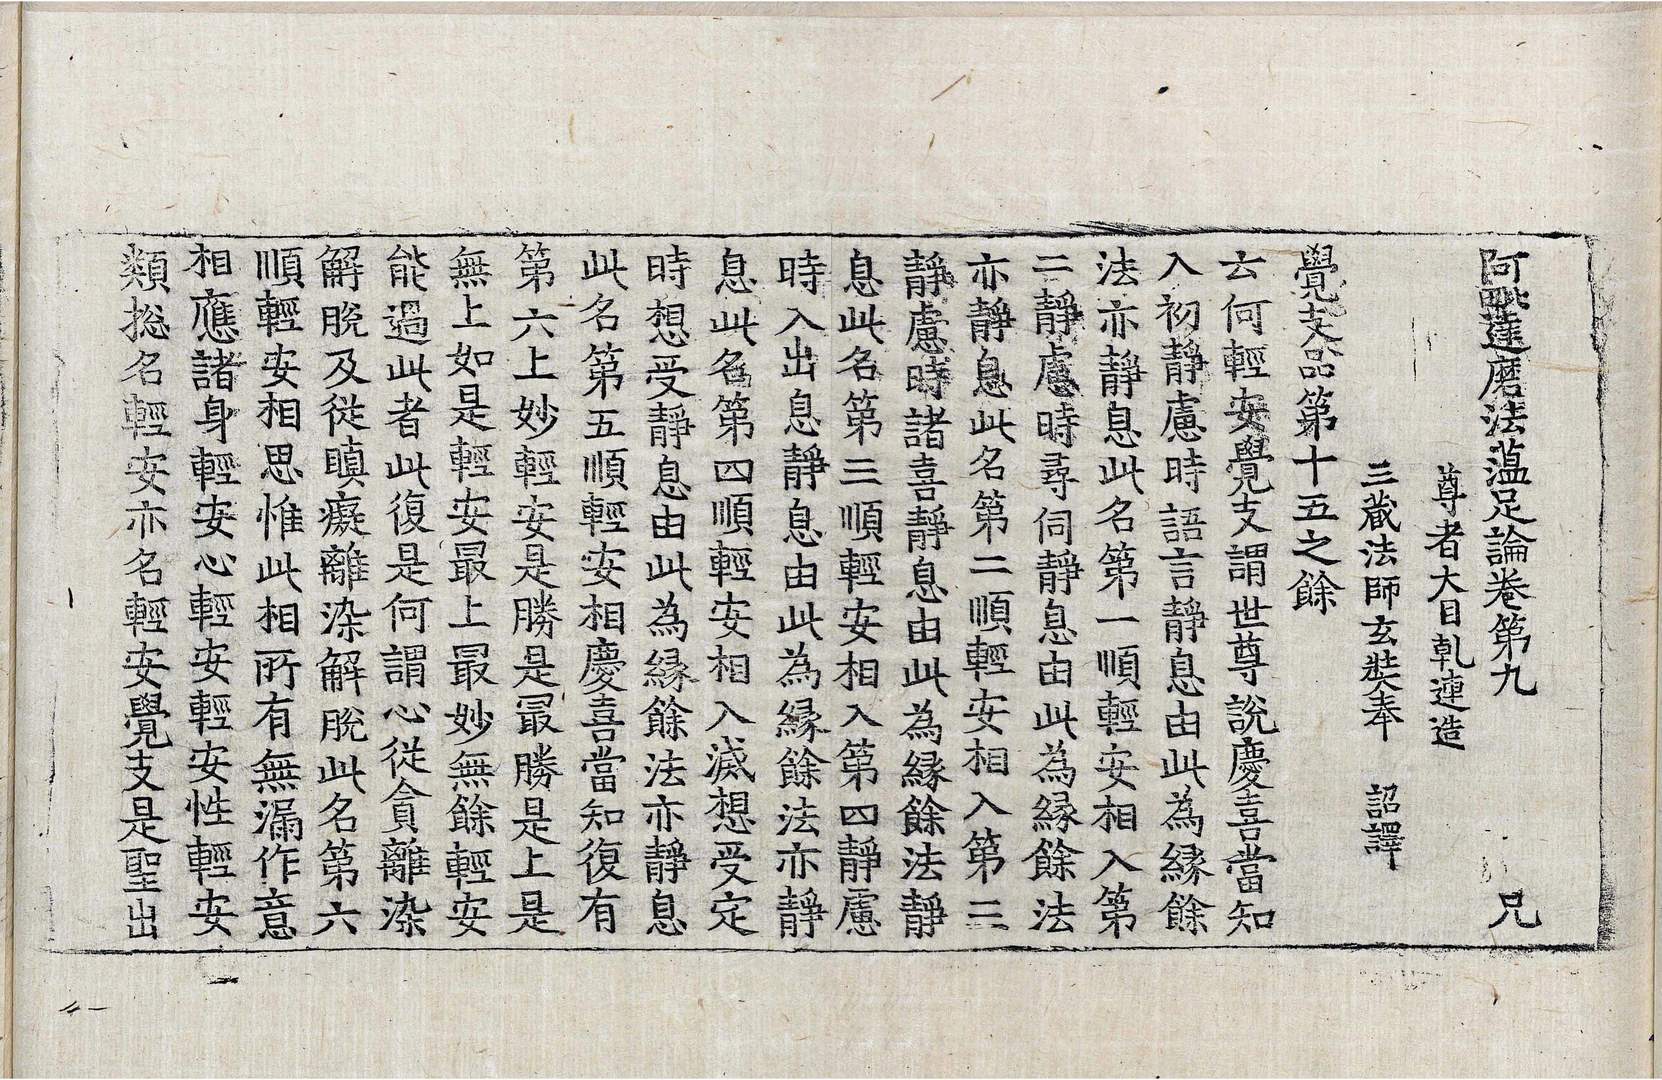 阿毗達磨法蘊足論卷第九 兄
尊者大目乹連造
三藏法師玄奘奉 詔譯
覺支品第十五之餘
云何輕安覺支謂世尊說慶喜當知
入初靜慮時語言靜息由此為緣餘
法亦靜息此名第一順輕安相入第
二靜慮時尋伺靜息由此為緣餘法
亦靜息此名第二順輕安相入第三
靜慮時諸喜靜息由此為緣餘法靜
息此名第三順輕安相入第四靜慮
時入出息靜息由此為緣餘法亦靜
息此名第四順輕安相入滅想受定
時想受靜息由此為緣餘法亦靜息
此名第五順輕安相慶喜當知復有
第六上妙輕安是勝是最勝是上是
無上如是輕安最上最妙無餘輕安
能過此者此復是何謂心從貪離染
解脫及從瞋癡離染解脫此名第六
順輕安相思惟此相所有無漏作意
相應諸身輕安心輕安輕安性輕安
類捴名輕安亦名輕安覺支是聖出